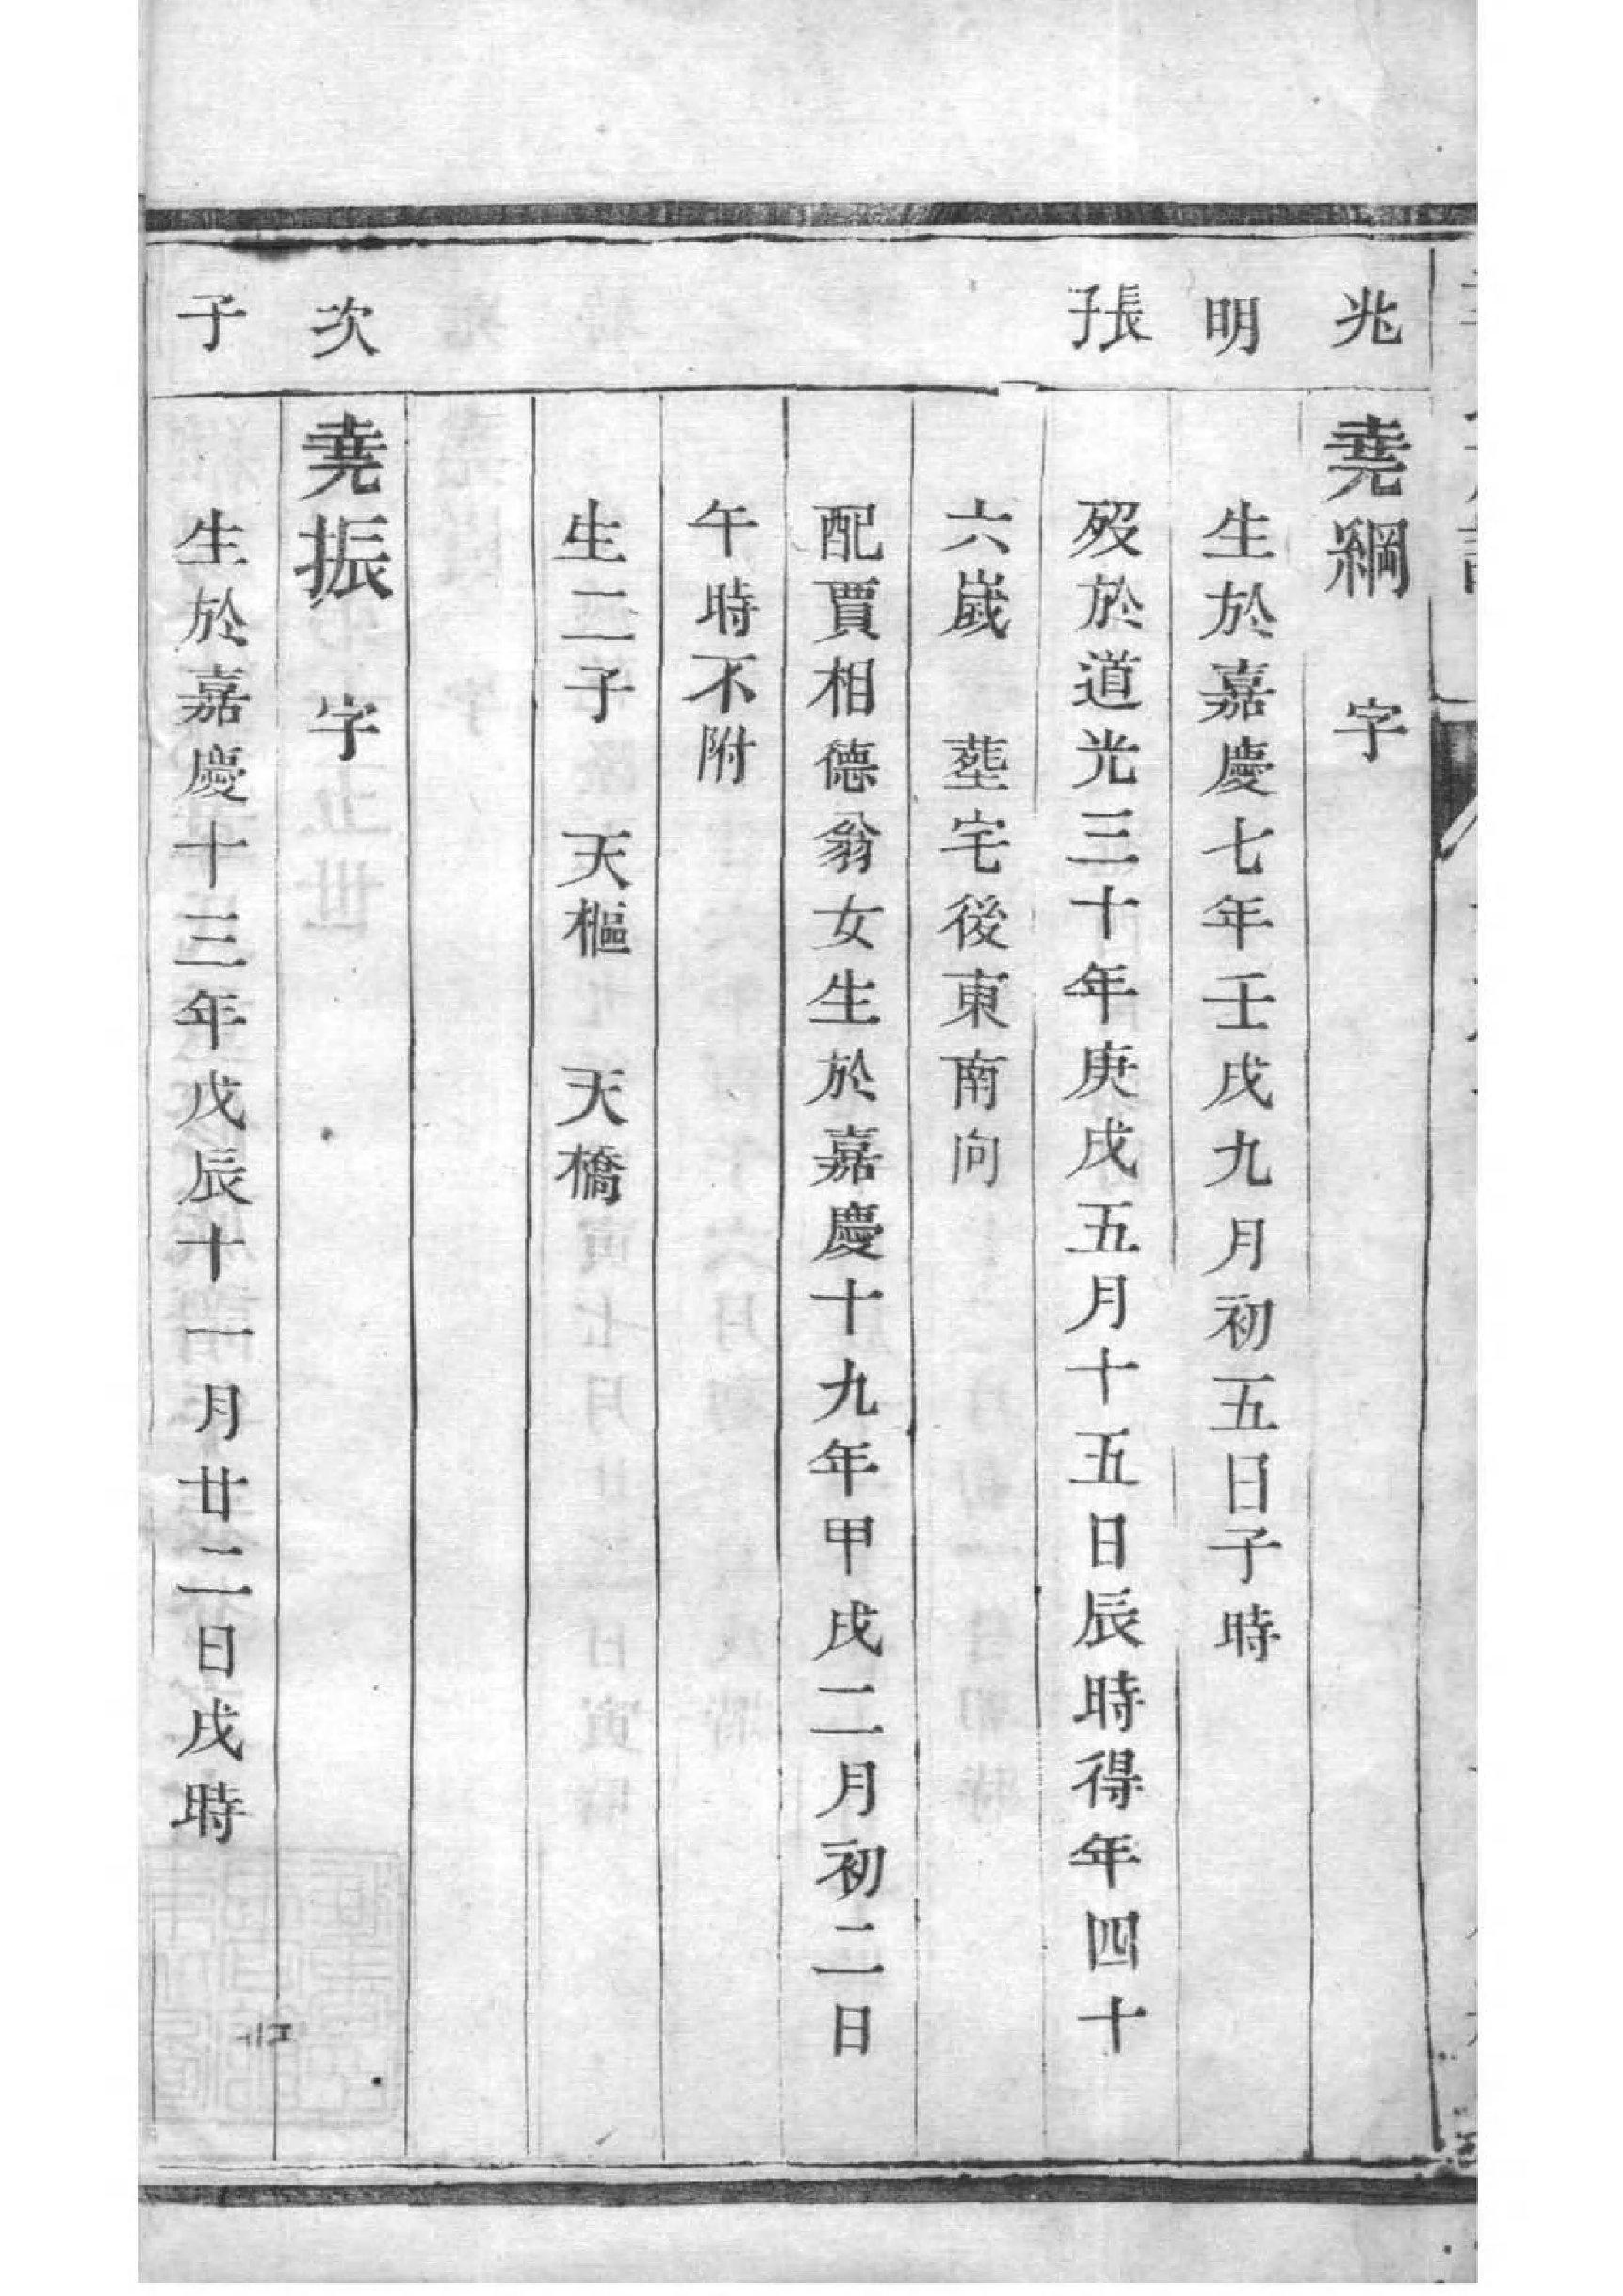 兆
堯綱 字
明
生於嘉慶七年壬戌九月初五日子時
張子
歿於道光三十年庚戌五月十五日辰時得年四十
六嵗 塟宅後東南向
配賈相德翁女生於嘉慶十九年甲戌二月初二日
午時不附
生二子 天樞 天橋
次
堯振 字
子
生於嘉慶十三年戊辰十一月廿二日戌時